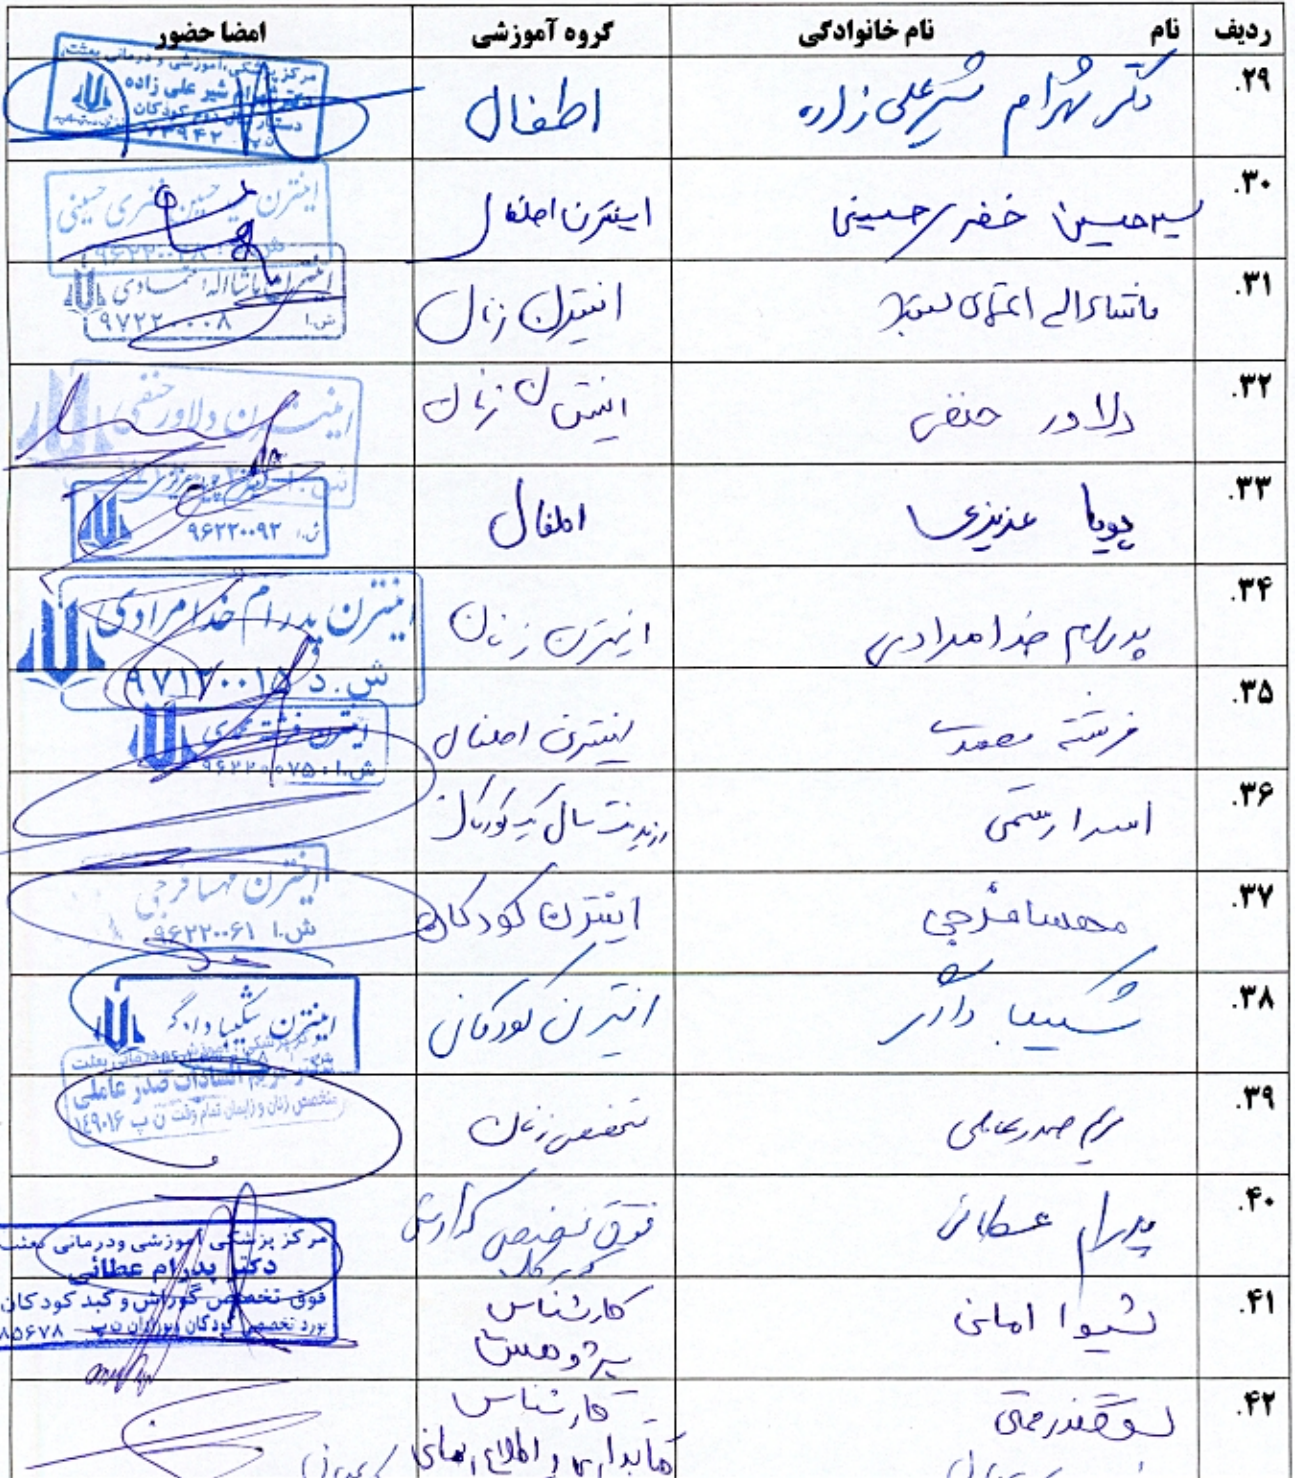 ردیف نام نام خانوادگی گروه آموزشی امضا حضور
۲۹. دکتر شهرام شیرعلی زاده اطفال
مرکز پزشکی، آموزشی و درمانی بعثت
دکتر شهرام شیر علی زاده
دستیار کودکان
ن پ ۷۳۹۴۲
۳۰. سیدحسین خضری حسینی اینترن اطفال
اینترن حسین خضری حسینی
۳۱. ماشاءاله اینترن زنان
ش.ا ۹۷۲۲۰۰۰۸
۳۲. دلاور حنفی اینترن زنان
اینترن دلاور حنفی
۳۳. پویا عزیزی اطفال
ش.ا ۹۶۲۲۰۰۹۲
۳۴. پدرام خدامرادی اینترن زنان
اینترن پدرام خدامرادی
ش.د ۹۷۱۲۰۰۱۵
۳۵. فرشته صمدی اینترن اطفال
ش.ا ۹۶۲۲۰۰۷۵
۳۶. اسرا رستمی رزیدنت سال یک کودکان
۳۷. مهسا فرجی اینترن کودکان
اینترن مهسا فرجی
ش.ا ۹۶۲۲۰۰۶۱
۳۸. شکیبا دادگر اینترن کودکان
اینترن شکیبا دادگر
۳۹. مریم صدرعاملی تخصص زنان
دکتر مریم السادات صدر عاملی
متخصص زنان و زایمان تمام وقت ن پ ۱۴۹۰۱۶
۴۰. پدرام عطائی فوق تخصص گوارش
کودکان
مرکز پزشکی آموزشی ودرمانی بعثت
دکتر پدرام عطائی
فوق تخصص گوارش و کبد کودکان
بورد تخصصی کودکان ونوزادان ن پ ۸۵۶۷۸
۴۱. شیوا امانی کارشناس
پژوهش
۴۲. کارشناس